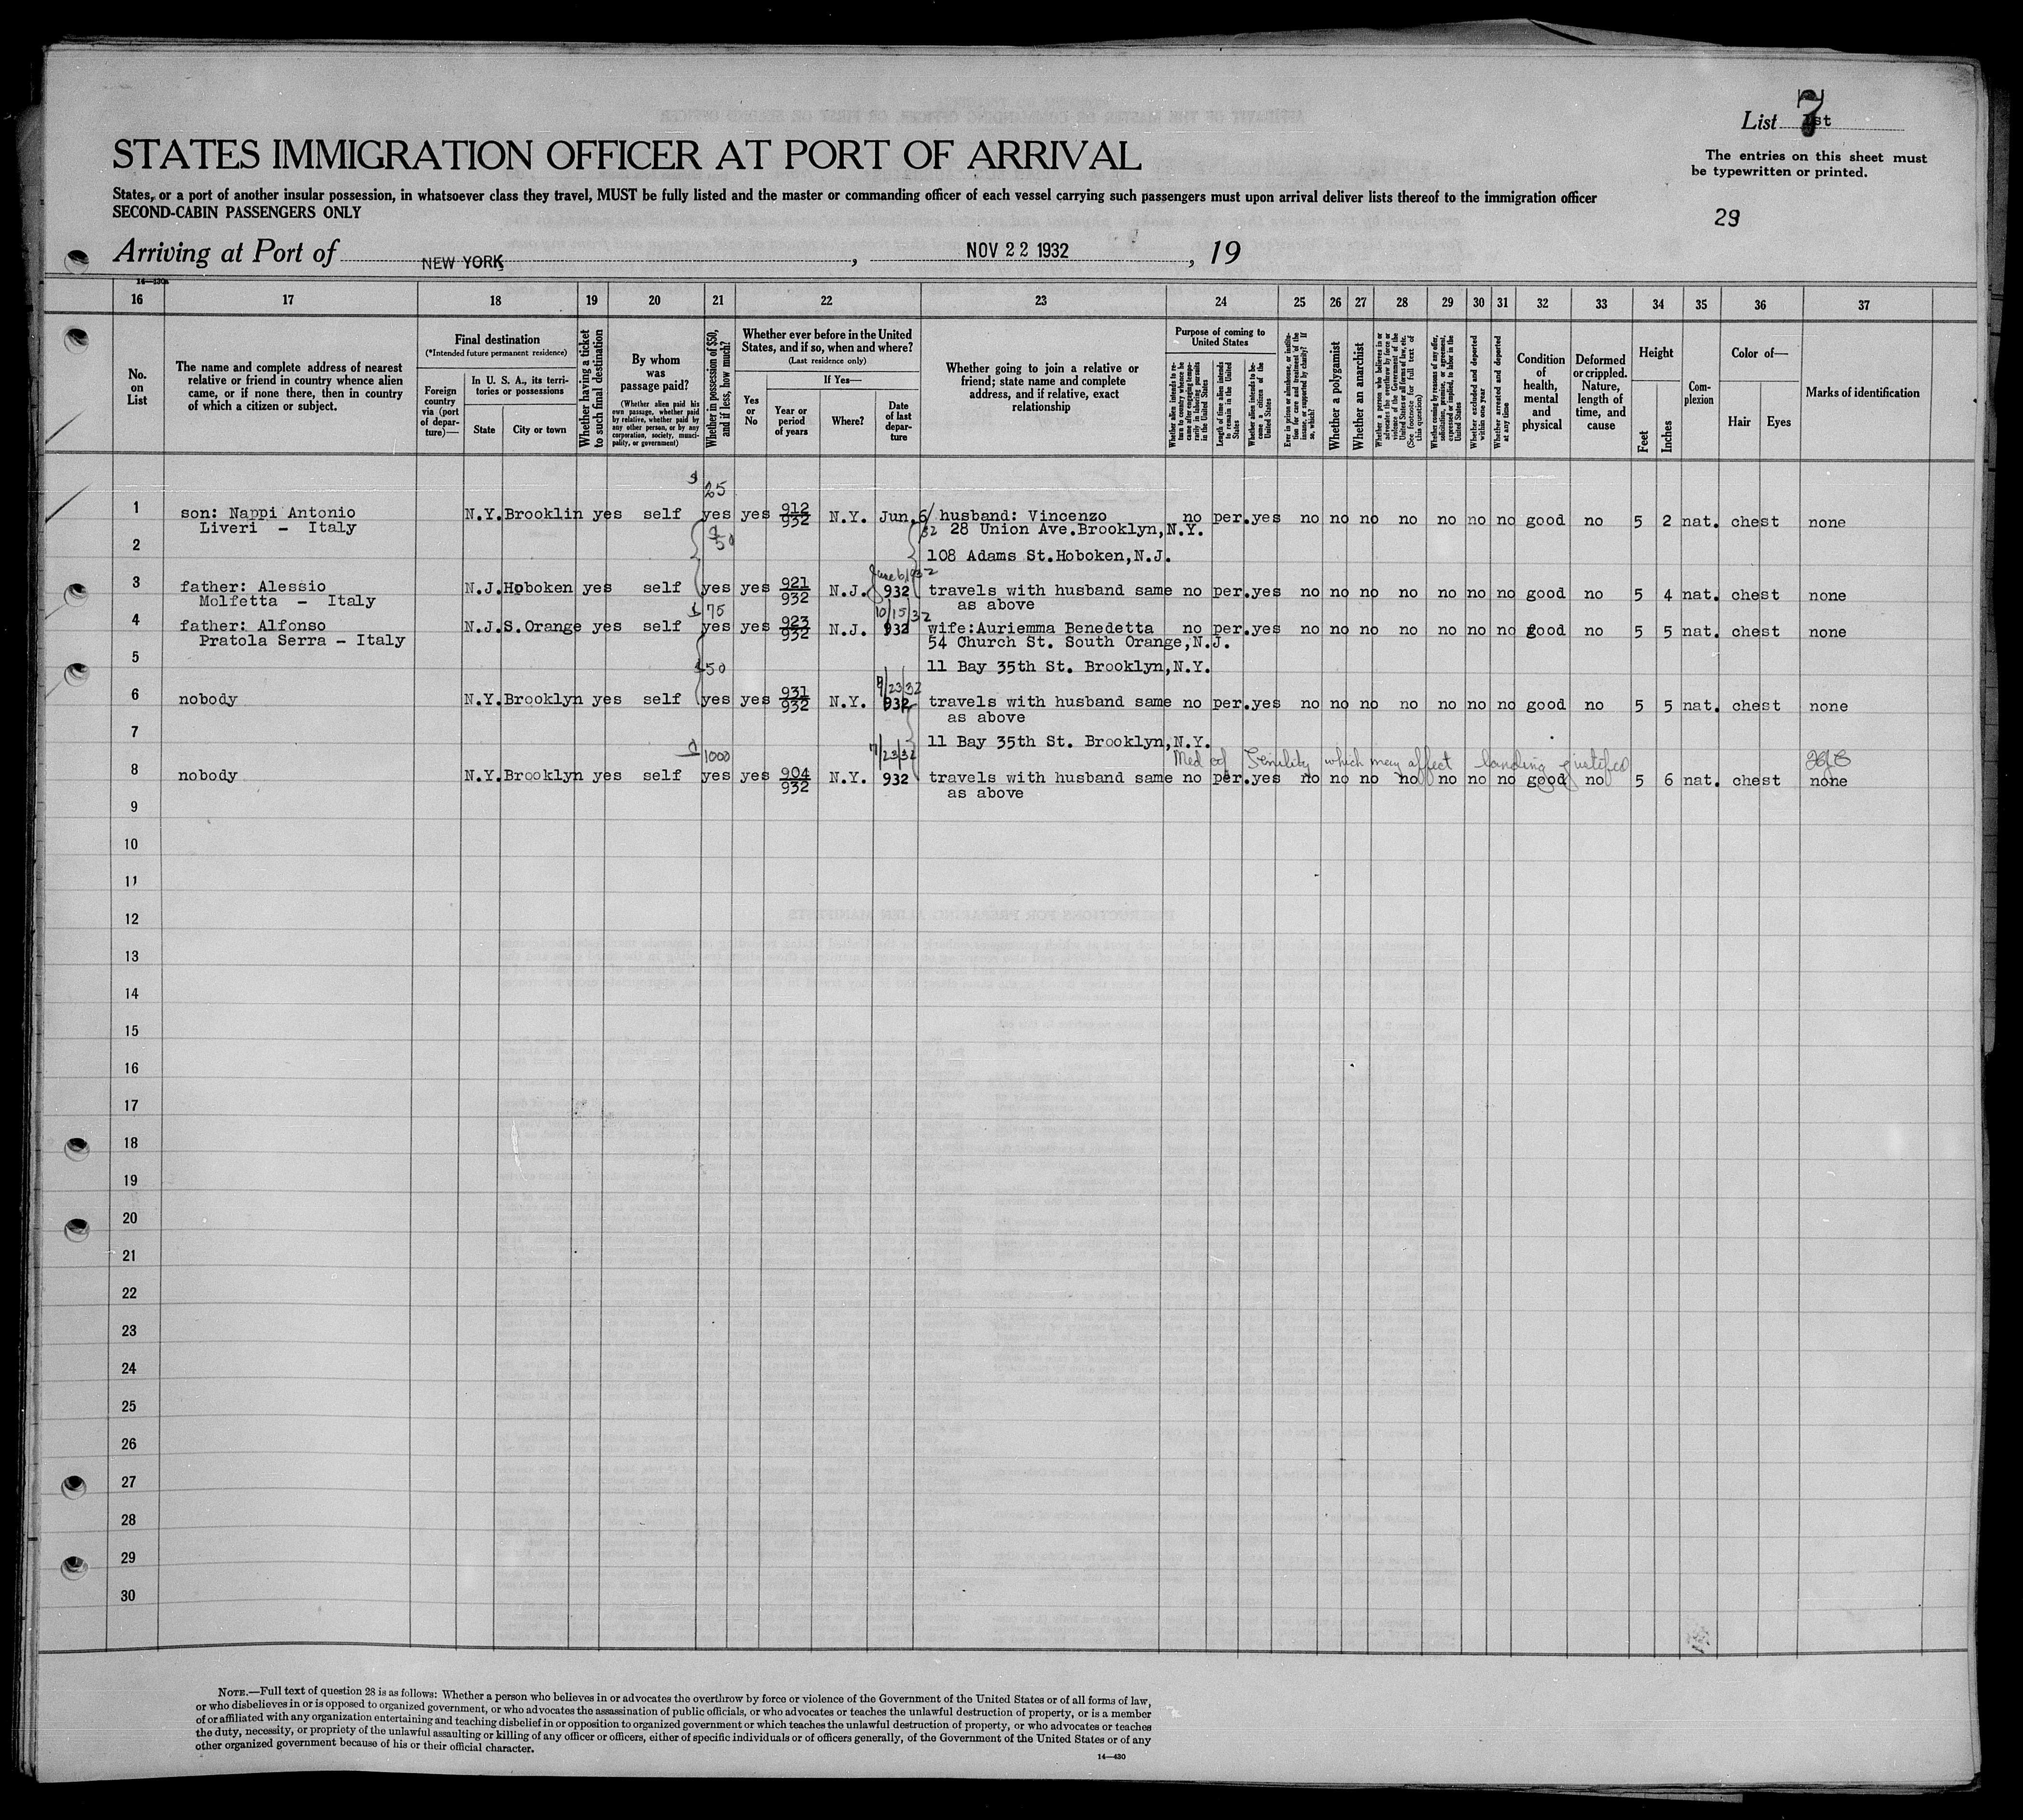 List 7 1st
The entries on this sheet must
be typewritten or printed.
STATES IMMIGRATION OFFICER AT PORT OF ARRIVAL
States, or a port of another insular possession, in whatsoever class they travel, MUST be fully listed and the master or commanding officer of each vessel carrying such passengers must upon arrival deliver lists thereof to the immigration officer
SECOND-CABIN PASSENGERS ONLY
29
Arriving at Port of NEW YORK, NOV 22 1932, 19
16 17 18 19 20 21 22 23 24 25 26 27 28 29 30 31 32 33 34 35 36 37
No. on List
The name and complete address of nearest relative or friend in country whence alien came, or if none there, then in country of which a citizen or subject.
Final destination
(*Intended future permanent residence)
Foreign country via (port of departure)—
In U. S. A., its territories or possessions
State
City or town
Whether having a ticket to such final destination
By whom was passage paid?
(Whether alien paid his own passage, whether paid by relative, whether paid by any other person, or by any corporation, society, municipality, or government)
Whether in possession of $50, and if less, how much?
Whether ever before in the United States, and if so, when and where?
(Last residence only)
Yes or No
If Yes—
Year or period of years
Where?
Date of last departure
Whether going to join a relative or friend; state name and complete address, and if relative, exact relationship
Purpose of coming to United States
Whether alien intends to return to country whence he came after engaging temporarily in laboring pursuits in the United States
Length of time alien intends to remain in the United States
Whether alien intends to become a citizen of the United States
Ever in prison or almshouse, or institution for care and treatment of the insane, or supported by charity? If so, which?
Whether a polygamist
Whether an anarchist
Whether a person who believes in or advocates the overthrow by force or violence of the Government of the United States or all forms of law, etc. (See footnote for full text of this question)
Whether coming by reasons of any offer, solicitation, promise, or agreement, expressed or implied, to labor in the United States
Whether excluded and deported within one year
Whether arrested and deported at any time
Condition of health, mental and physical
Deformed or crippled. Nature, length of time, and cause
Height
Feet
Inches
Complexion
Color of—
Hair
Eyes
Marks of identification
$ 25
1 son: Nappi Antonio N.Y. Brooklin yes self yes yes 912 932 N.Y. Jun.6/ 32 husband: Vincenzo no per. yes no no no no no no no good no 5 2 nat. chest none
Liveri - Italy 28 Union Ave.Brooklyn,N.Y.
2 $ 50 108 Adams St.Hoboken,N.J.
June 6, 1932
3 father: Alessio N.J. Hoboken yes self yes yes 921 932 N.J. 932 travels with husband same no per. yes no no no no no no no good no 5 4 nat. chest none
Molfetta - Italy as above
$ 75 10/15/32
4 father: Alfonso N.J. S. Orange yes self yes yes 923 932 N.J. 932 wife:Auriemma Benedetta no per. yes no no no no no no no good no 5 5 nat. chest none
Pratola Serra - Italy 54 Church St. South Orange,N.J.
5 $50 11 Bay 35th St. Brooklyn,N.Y.
6 nobody N.Y. Brooklyn yes self yes yes 931 932 N.Y. /23/32 932 travels with husband same no per. yes no no no no no no no good no 5 5 nat. chest none
as above
7 11 Bay 35th St. Brooklyn,N.Y.
$ 1000 7/23/32 Med cf Senility which may affect landing justified
8 nobody N.Y. Brooklyn yes self yes yes 904 932 N.Y. 932 travels with husband same no per. yes no no no no no no no good no 5 6 nat. chest none
as above
9
10
11
12
13
14
15
16
17
18
19
20
21
22
23
24
25
26
27
28
29
30
NOTE.—Full text of question 28 is as follows: Whether a person who believes in or advocates the overthrow by force or violence of the Government of the United States or of all forms of law,
or who disbelieves in or is opposed to organized government, or who advocates the assassination of public officials, or who advocates or teaches the unlawful destruction of property, or is a member
of or affiliated with any organization entertaining and teaching disbelief in or opposition to organized government or which teaches the unlawful destruction of property, or who advocates or teaches
the duty, necessity, or propriety of the unlawful assaulting or killing of any officer or officers, either of specific individuals or of officers generally, of the Government of the United States or of any
other organized government because of his or their official character.
14—430